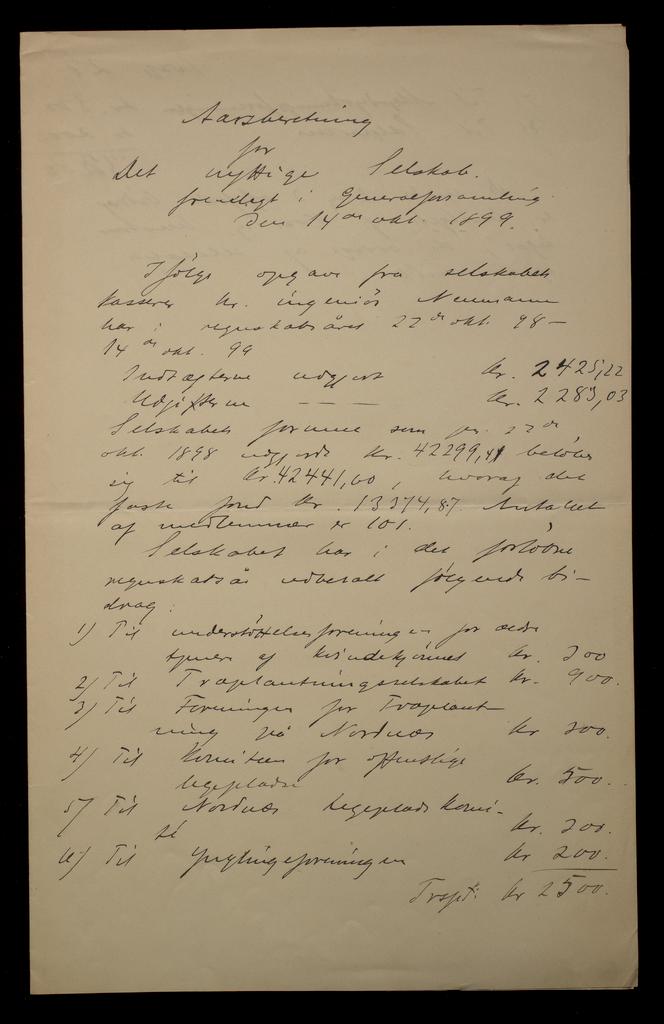 Aarsberetning
for
Det nyttige Selskab.
fremlagt i Generalforsamling
den 14de okt. 1899.
Ifølge opgave fra selskabets
kasserer hr. ingeniør Neumann
har i regnskabsåret 22de okt. 98 –
14de okt. 99
Indtægterne udgjort kr. 2425,22
Udgifterne — — kr. 2283,03
Selskabets formue som pr. 22de
okt. 1898 udgjorde kr. 42299,41 beløber
sig til kr. 42441,60, hvorav det
faste fond kr. 13374,87. Antallet
af medlemmer er 101.
Selskabet har i det forløbne
regnskabsår udbetalt følgende bi-
drag:
1) Til understøttelsesforeningen for ældre
tjenere af kvindekjønnet kr. 300
2) Til Træplantningsselskabet kr. 900.
3) Til Foreningen for Træplant-
ning på Nordnæs kr 300.
4) Til Komiteen for offentlige
legepladse kr. 500.
5) Til Nordnæs legepladskomi-
té kr. 300.
6) Til Ynglingeforeningen kr 200.
Trspt: kr 2500.